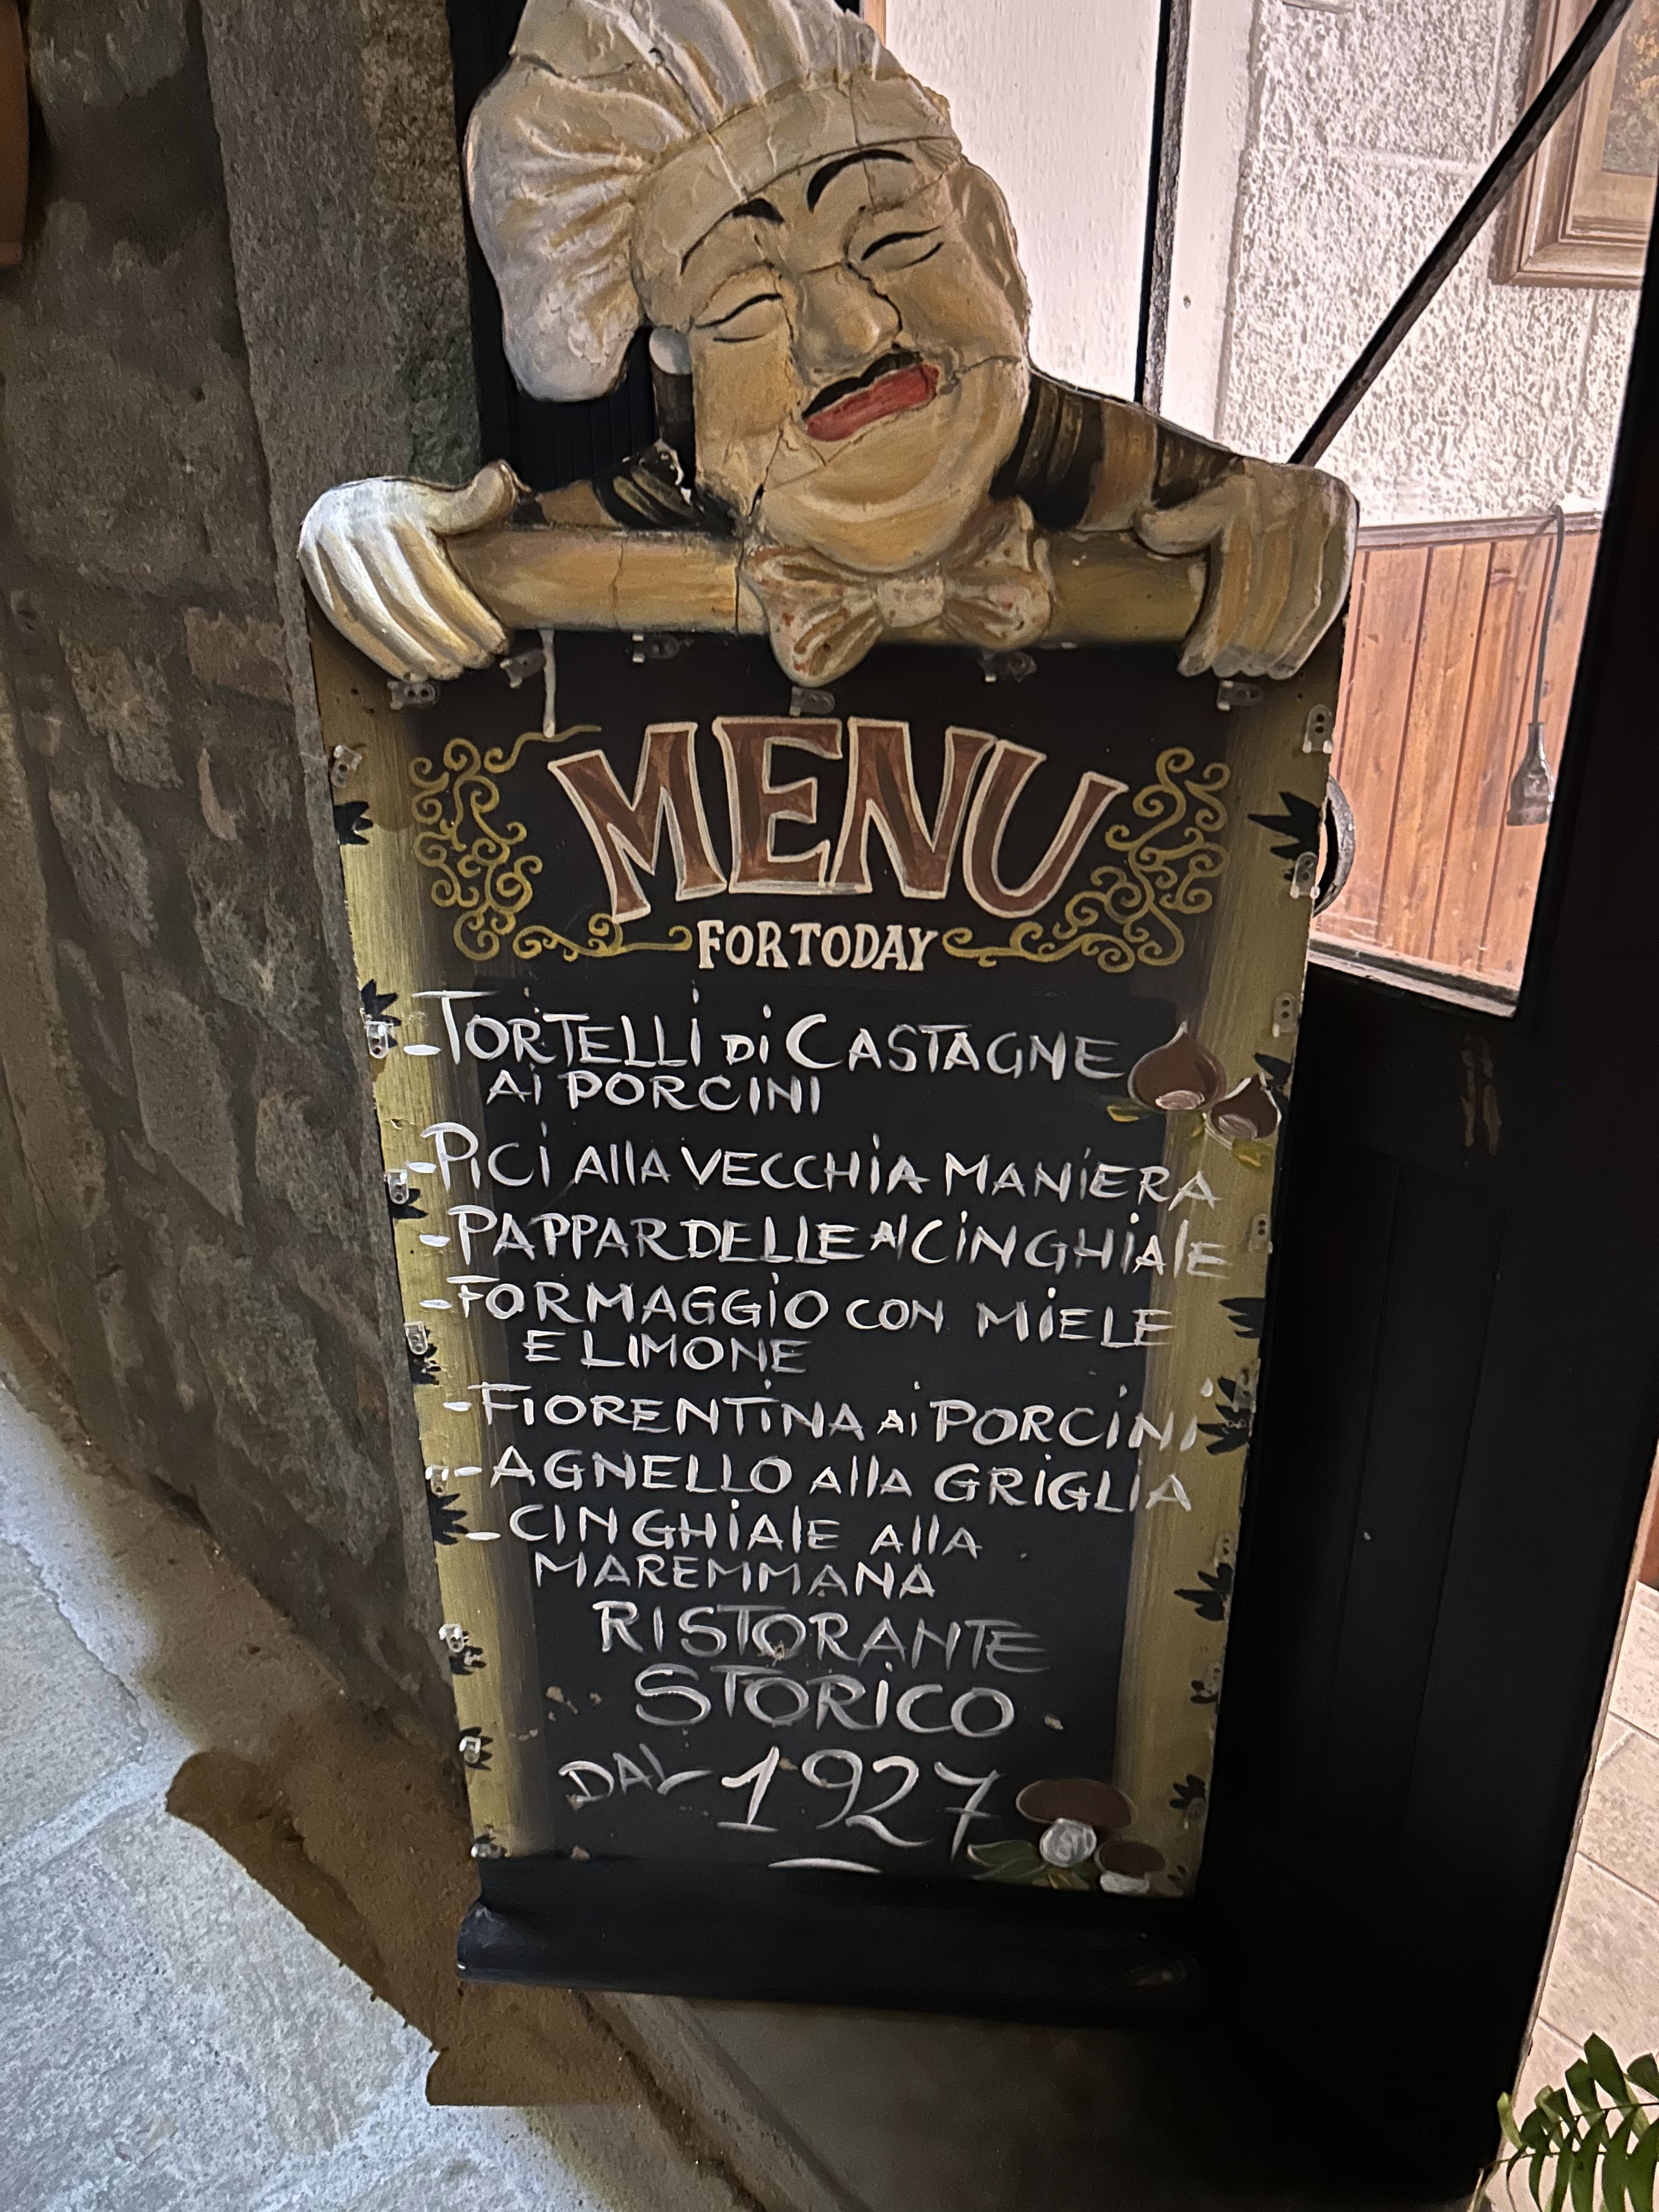 MENU
FOR TODAY
-TORTELLI Di CASTAGNE
Ai PORCINI
-PiCi AllA VECCHiA MANiERA
-PAPPARDELLE Al CiNGHiAlE
-FORMAGGiO CON MiELE
E LiMONE
-FIORENTiNA Ai PORCiNi
-AGNELLO AllA GRiGLiA
-CINGHiAlE AllA
MAREMMANA
RISTORANTE
STORiCO
DAL 1927